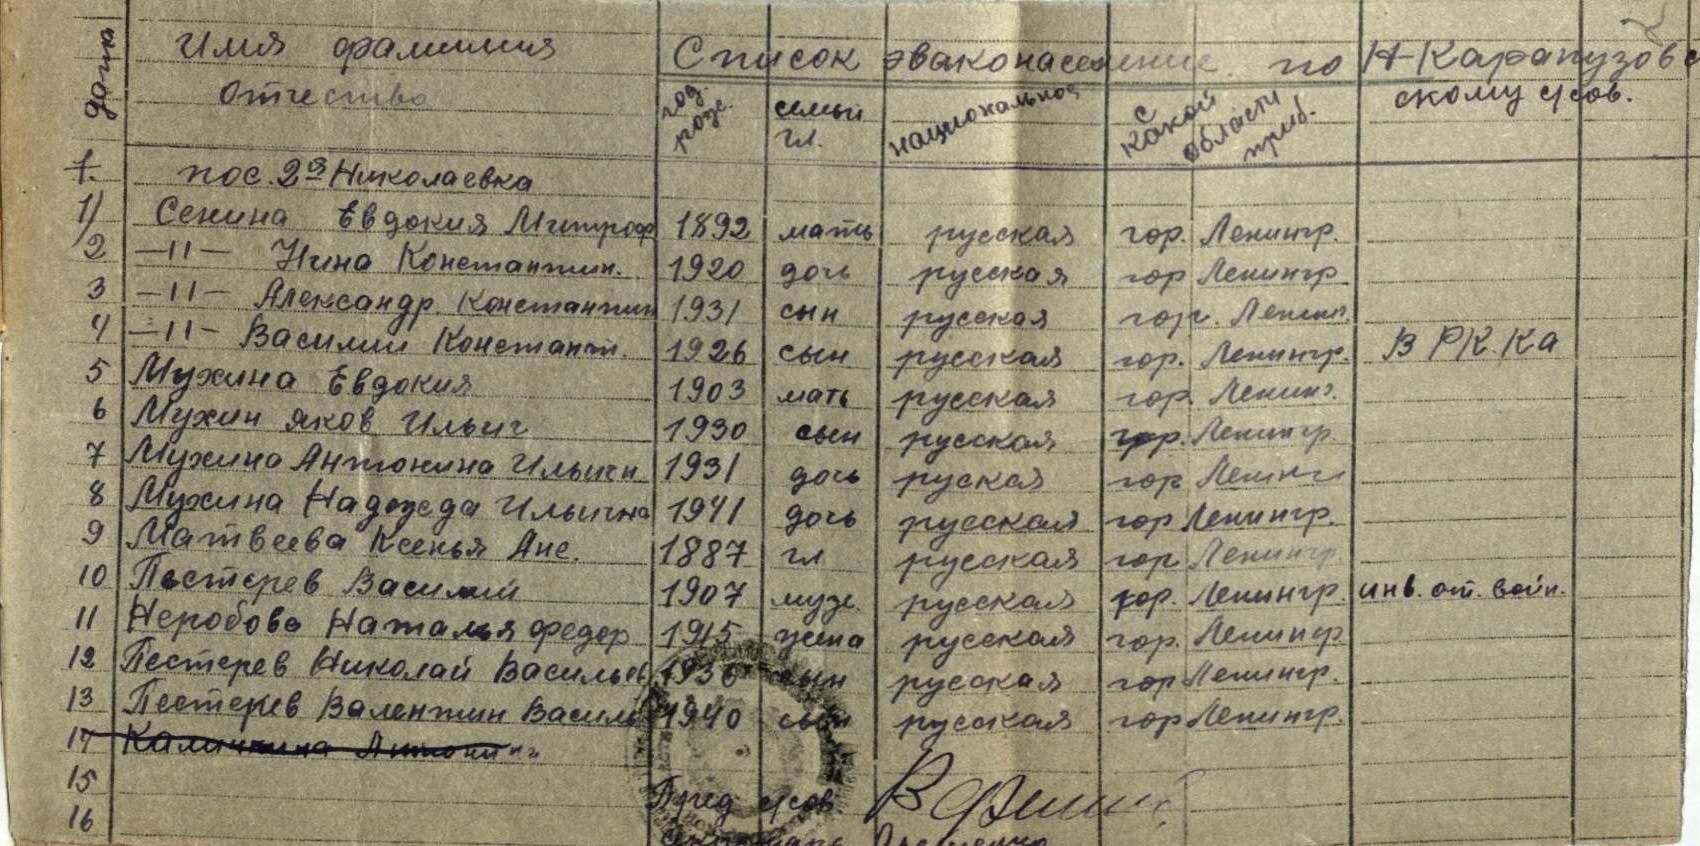 дата Имя фамилия Список эваконаселение по Н-Карапузов
отчество год рожд. семьи гл. национальное с какой области приб. скому с/сов.
1. пос. 2я Николаевка
1) Сенина Евдокия Митроф 1892 мать русская гор. Ленингр.
2 —II— Нина Константин. 1920 дочь русская гор Ленингр
3 —II— Александр. Константин 1931 сын русская гор. Ленинг.
4 —II— Василий Константи. 1926 сын русская гор. Ленингр. В РККА
5 Мухина Евдокия 1903 мать русская гор. Ленинг.
6 Мухин Яков Ильич 1930 сын русская гор. Ленингр.
7 Мухина Антонина Ильичн. 1931 дочь руская гор Ленинг
8 Мухина Надежда Ильична 1941 дочь русская гор Ленингр.
9 Матвеева Ксенья Ане. 1887 гл русская гор Ленингр.
10 Пестерев Василий 1907 муж. русская гор. Ленингр. инв. от. войн.
11 Неробова Наталья Федор 1915 жена русская гор. Ленингр
12 Пестерев Николай Васильев 1936 сын русская гор Ленингр.
13 Пестерев Валентин Василь 1940 сын русская гор Ленингр.
17 Калинкина Антонин
15
Пред с/сов.
16
секретарь